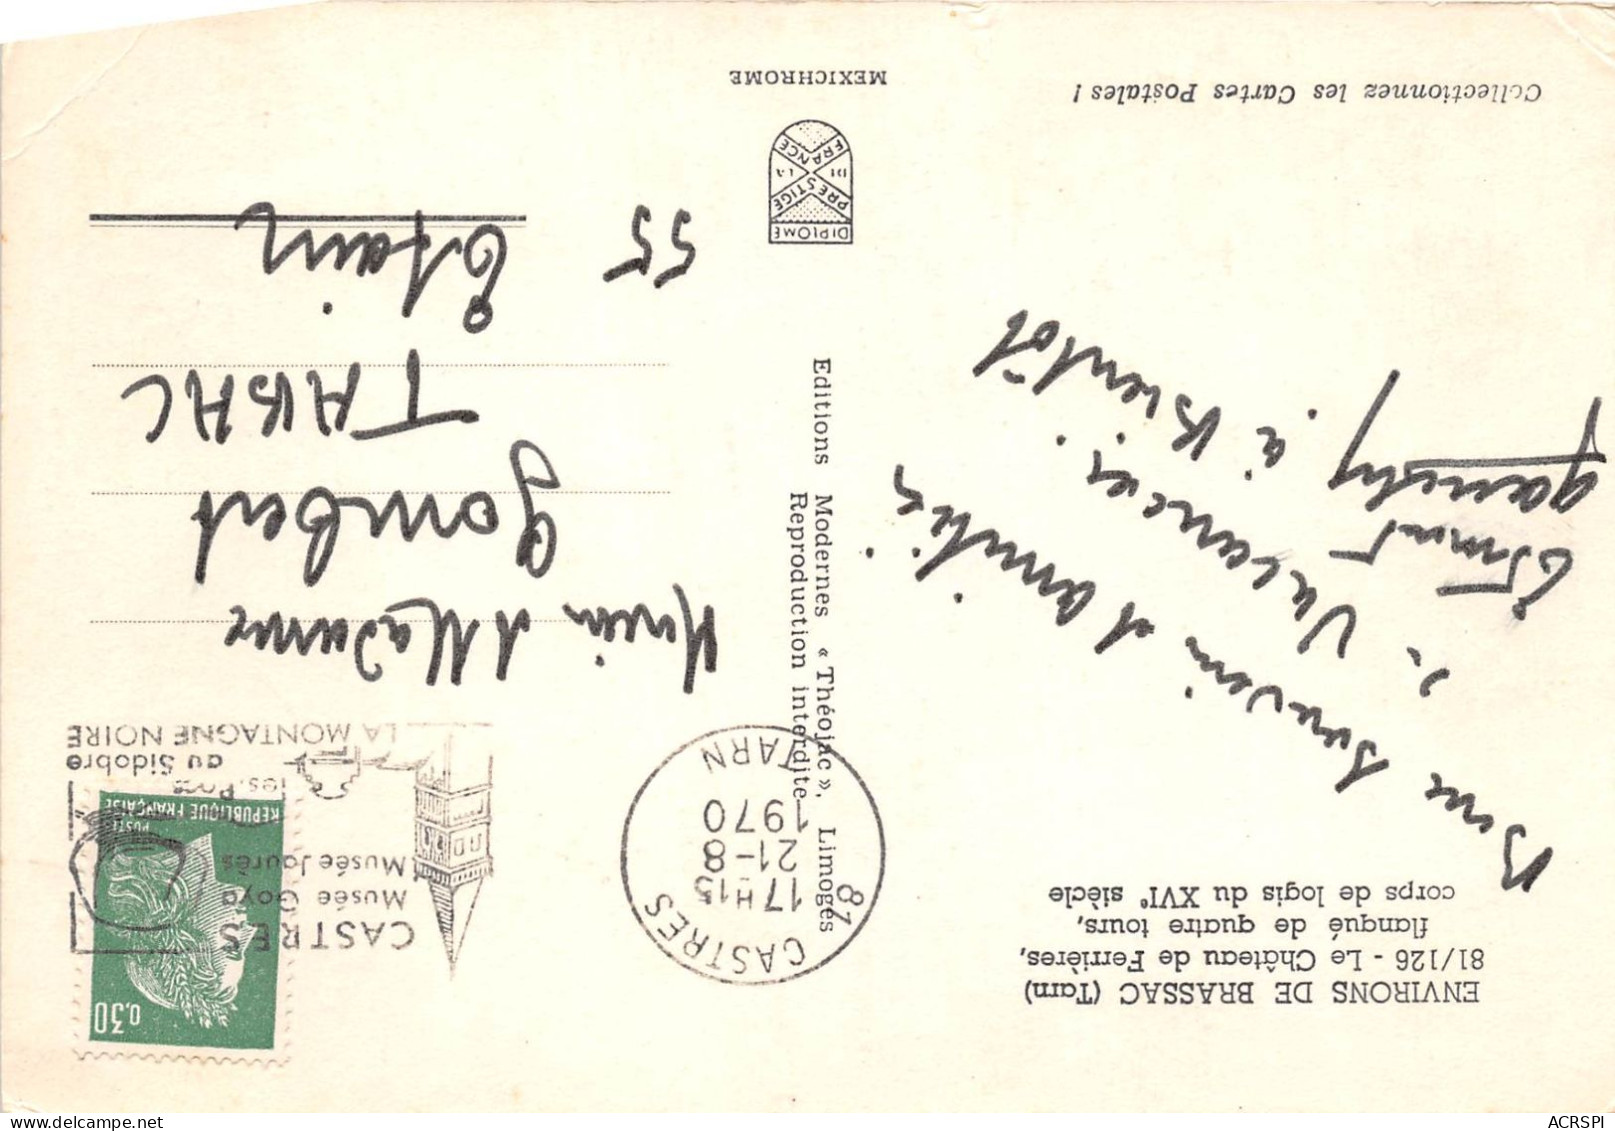 ENVIRONS DE BRASSAC (Tarn)
81/126 - Le Château de Ferrières,
flanqué de quatre tours,
corps de logis du XVIe siècle
Bons Souvenirs et d'amitiés
de Vacances. à Bientôt
Collectionnez les Cartes Postales !
Editions Modernes « Théojac », Limoges
Reproduction interdite
DIPLOME
PRESTIGE
DE LA
FRANCE
MEXICHROME
81 CASTRES
17 H 15
21-8
1970
TARN
CASTRES
Musée Goya
Musée Jaurès
au Sidobre
LA MONTAGNE NOIRE
0,30
POSTES
REPUBLIQUE FRANÇAISE
et Madame
Gombert
TABAC
55 Etain
ACRSPI